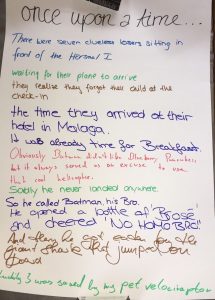 once upon a time...
There were seven clueless losers sitting in
front of the
waiting for their plane to arrive
they realise they forgot their child at the
check-in
the time they arrived at their
hotel in Malaga.
It was already time for Breakfast.
Obviously Batman didn't like Blueberry Pancakes
but it always served as an excuse to use
that cool helicopter.
Sadly he never landed anywhere.
So he called Baatman, his Bro.
He opened a bottle of "Rosé"
and cheered "No HOMO BRO"
And they
giant that jumped on
board
was saved by my pet velociraptor